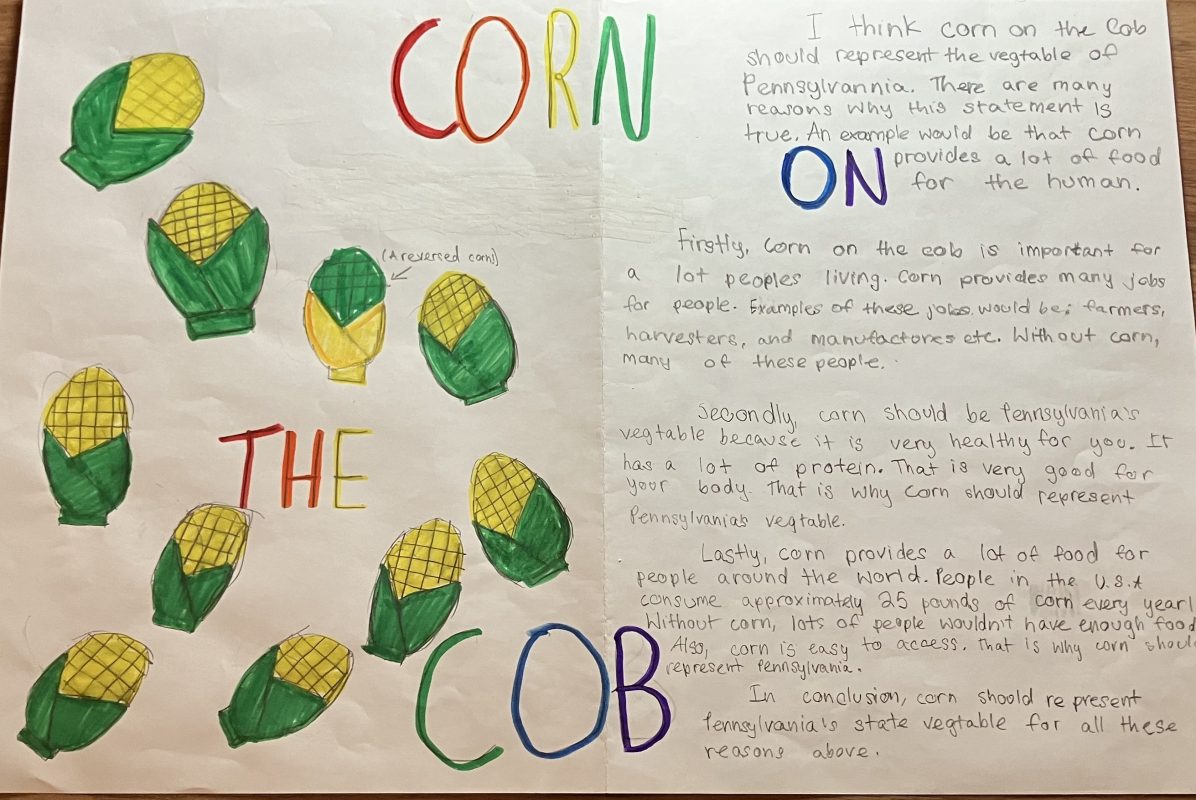 CORN
ON
THE
COB
(A reversed corn!)
I think corn on the Cob
should represent the vegtable of
Pennsylvannia. There are many
reasons why this statement is
true. An example would be that corn
provides a lot of food
for the human.
Firstly, corn on the cob is important for
a lot peoples living. Corn provides many jobs
for people. Examples of these jobs would be; farmers,
harvesters, and manufactores etc. Without corn,
many of these people.
Secondly, corn should be Pennsylvania's
vegtable because it is very healthy for you. It
has a lot of protein. That is very good for
your body. That is why corn should represent
Pennsylvania's vegtable.
Lastly, corn provides a lot of food for
people around the world. People in the U.S.A
consume approximately 25 pounds of corn every year!
Without corn, lots of people wouldn't have enough food
Also, corn is easy to access. That is why corn shoul
represent Pennsylvania.
In conclusion, corn should represent
Pennsylvania's state vegtable for all these
reasons above.